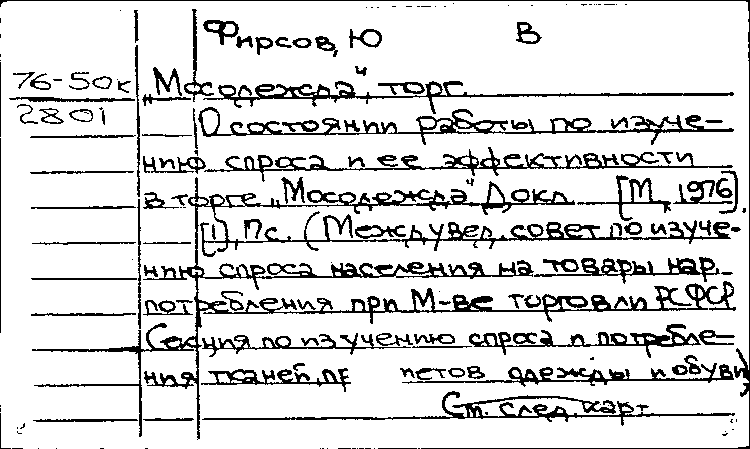 Фирсов, Ю В
76-50к „Мосодежда", торг.
2801 О состоянии работы по изуче-
нию спроса и ее эффективности
в торге „Мосодежда" Докл. [М., 1976].
[1], 7 с. (Междувед. совет по изуче-
нию спроса населения на товары нар.
потребления при М-ве торговли РСФСР.
Секция по изучению спроса и потребле-
ния тканей, одежды и обуви)
См. след. карт.